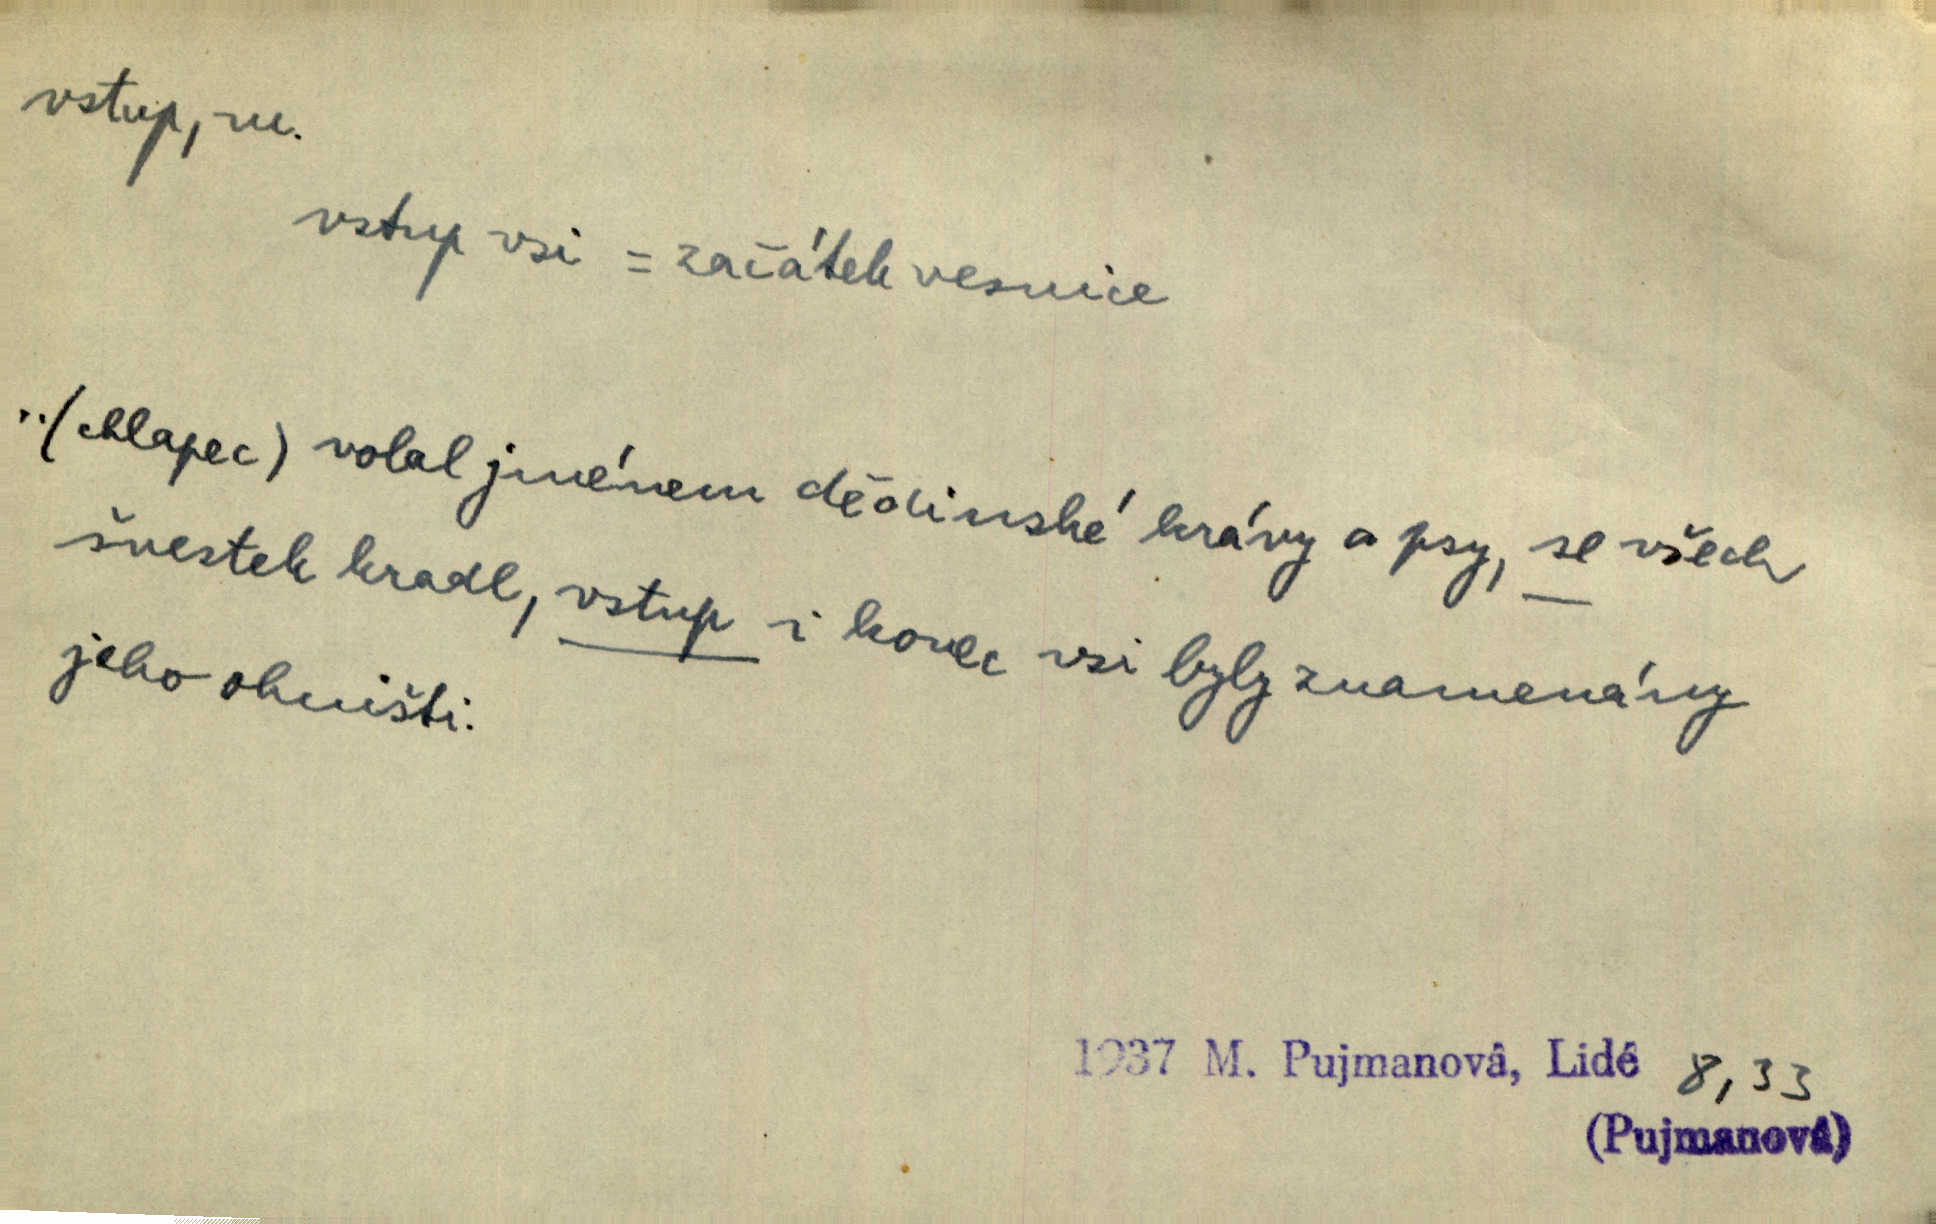 vstup, m.
vstup vsi = začátek vesnice
..(chlapec) volal jménem dědinské krávy a psy, se všech
švestek kradl, vstup i konec vsi byly znamenány
jeho ohništi.
1937 M. Pujmanová, Lidé 8,33
(Pujmanová)